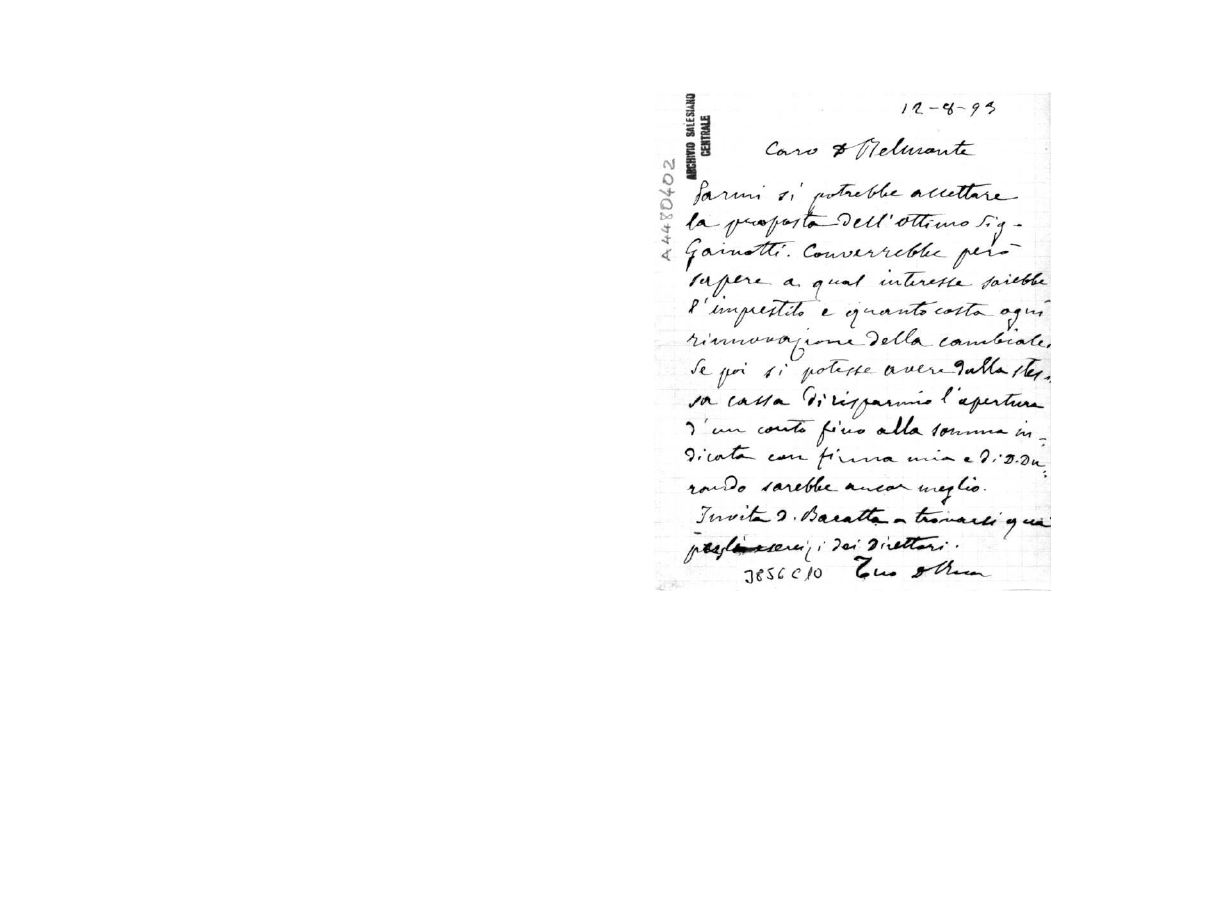 12-8-93
ARCHIVIO SALESIANO
CENTRALE
A4480402
Caro D Belmonte
Parmi si potrebbe accettare
la proposta dell'ottimo Sig-
Gainotti. Converrebbe però
sapere a qual interesse sarebbe
l'imprestito e quanto costa ogni
rinnovazione della cambiale.
Se poi si potesse avere dalla stes-
sa cassa di risparmio l'apertura
d'un conto fino alla somma in-
dicata con firma mia e di D. Du-
rando sarebbe ancor meglio.
Invita D. Baratta a trovarsi qua
pegli esercizi dei Direttori.
Tuo D Rua
3856C10